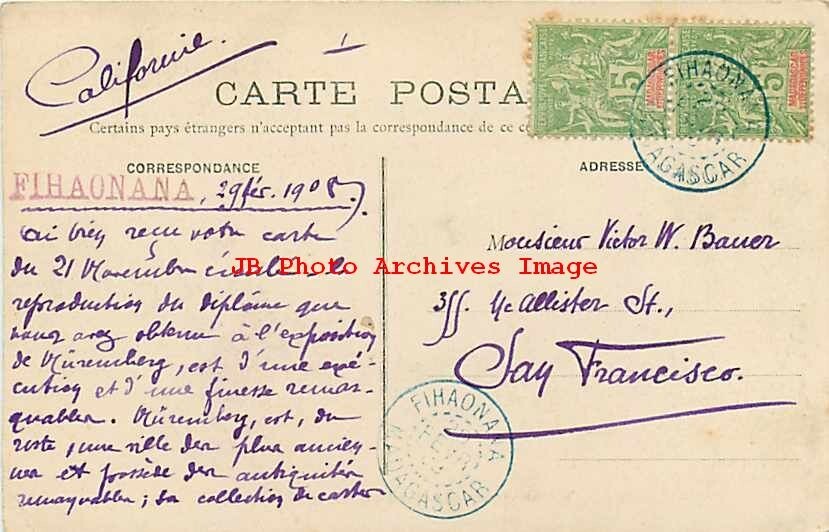 Californie.
1
CARTE POSTA
Certains pays étrangers n'acceptant pas la correspondance de ce cô
5
MADAGASCAR ET DÉPENDANCES
5
MADAGASCAR ET DÉPENDANCES
FIHAONANA
MADAGASCAR
CORRESPONDANCE
ADRESSE
FIHAONANA, 29 fév. 1908
J'ai bien reçu votre carte
du 21 Novembre écoulé - la
reproduction du diplôme que
vous avez obtenu à l'exposition
de Nüremberg, est d'une exé-
cution et d'une finesse remar-
quables. Nüremberg, est, du
reste, une ville des plus ancien-
nes et possède des antiquités
remarquables; sa collection de cartes
JB Photo Archives Image
Monsieur Victor W. Bauer
355. Mc Allister St.,
San Francisco.
FIHAONANA
MADAGASCAR